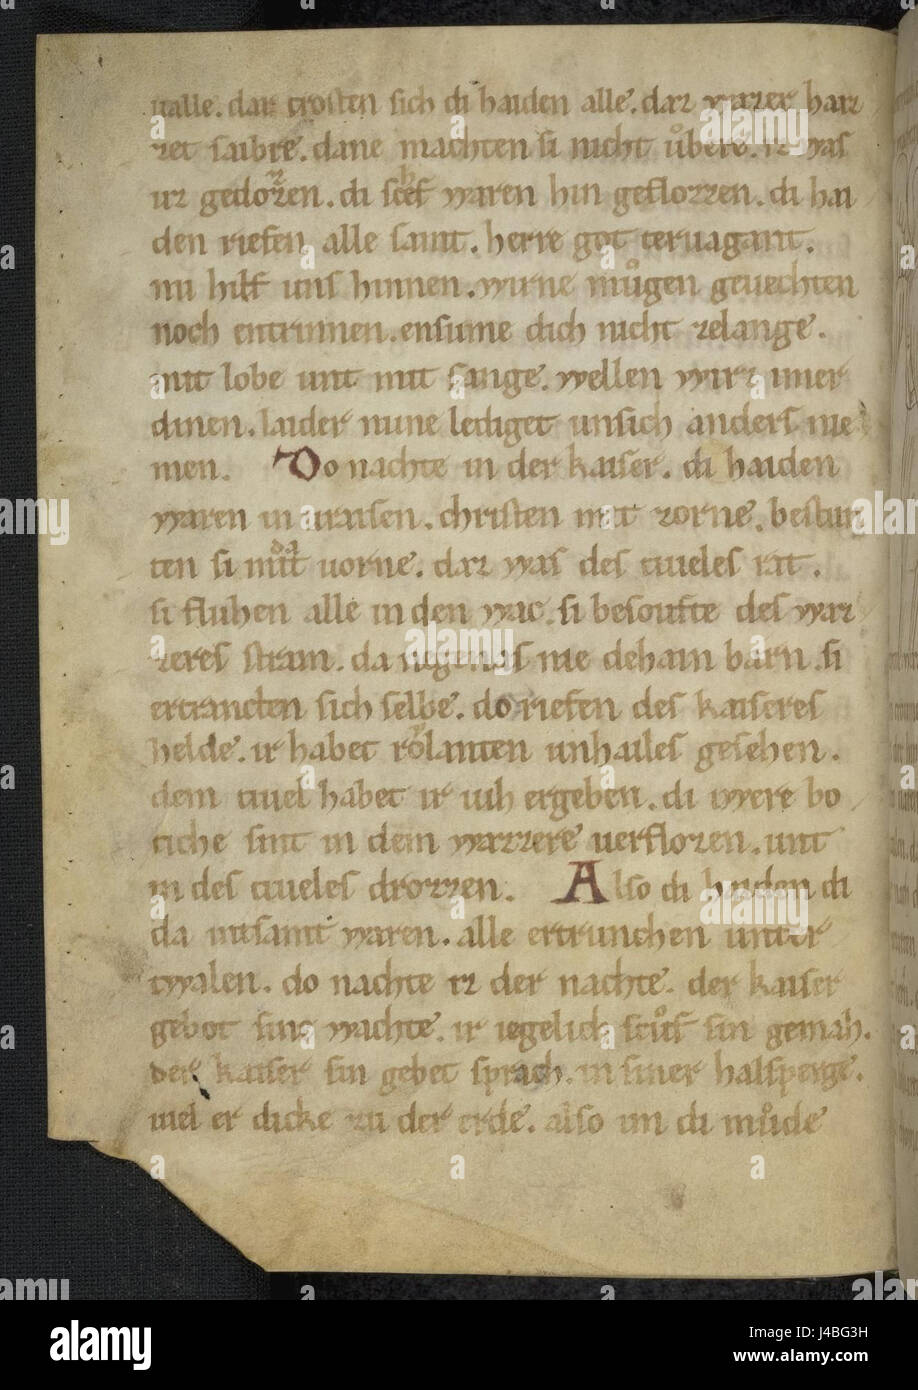 ualle. daz trosten sich di haiden alle. daz wazer haiz
zet saibre. dane machten si nicht uͦbere. iz was
uz gedozzen. di scef waren hin geflozzen. di hai
den riefen alle samt. herre got teruagant.
nu hilf uns hinnen. wirne muͦgen geuechten
noch entrinnen. ensume dich nicht zelange.
mit lobe unt mit sange. wellen wirz imer
dinen. laider nune lediget unsich anders nie
men. Do nachte in der kaiser. di haiden
waren in uraisen. christen mit zorne. bestun
ten si uorne. daz was des tiueles rat.
si fluhen alle in den wac. si besoufte des waz
zeres stram. da negenas nie dehain barn. si
ertrancten sich selbe. do riefen des kaiseres
helde. ir habet roͤlanten unhailes gesehen.
dem tiuel habet ir iuh ergeben. di were bo
tiche sint in dem wazzere uerflozen. unt
in des tiueles drozzen. Also di haiden di
da mitsamt waren. alle ertrunchen unter
twalen. do nachte iz der nachte. der kaiser
gebot sine wachte. ir iegelich scuͦf sin gemah.
der kaiser sin gebet sprach. in siner halsperge.
uiel er dicke zu der erde. also im di muͦde
alamy
Image ID: J4BG3H
www.alamy.com